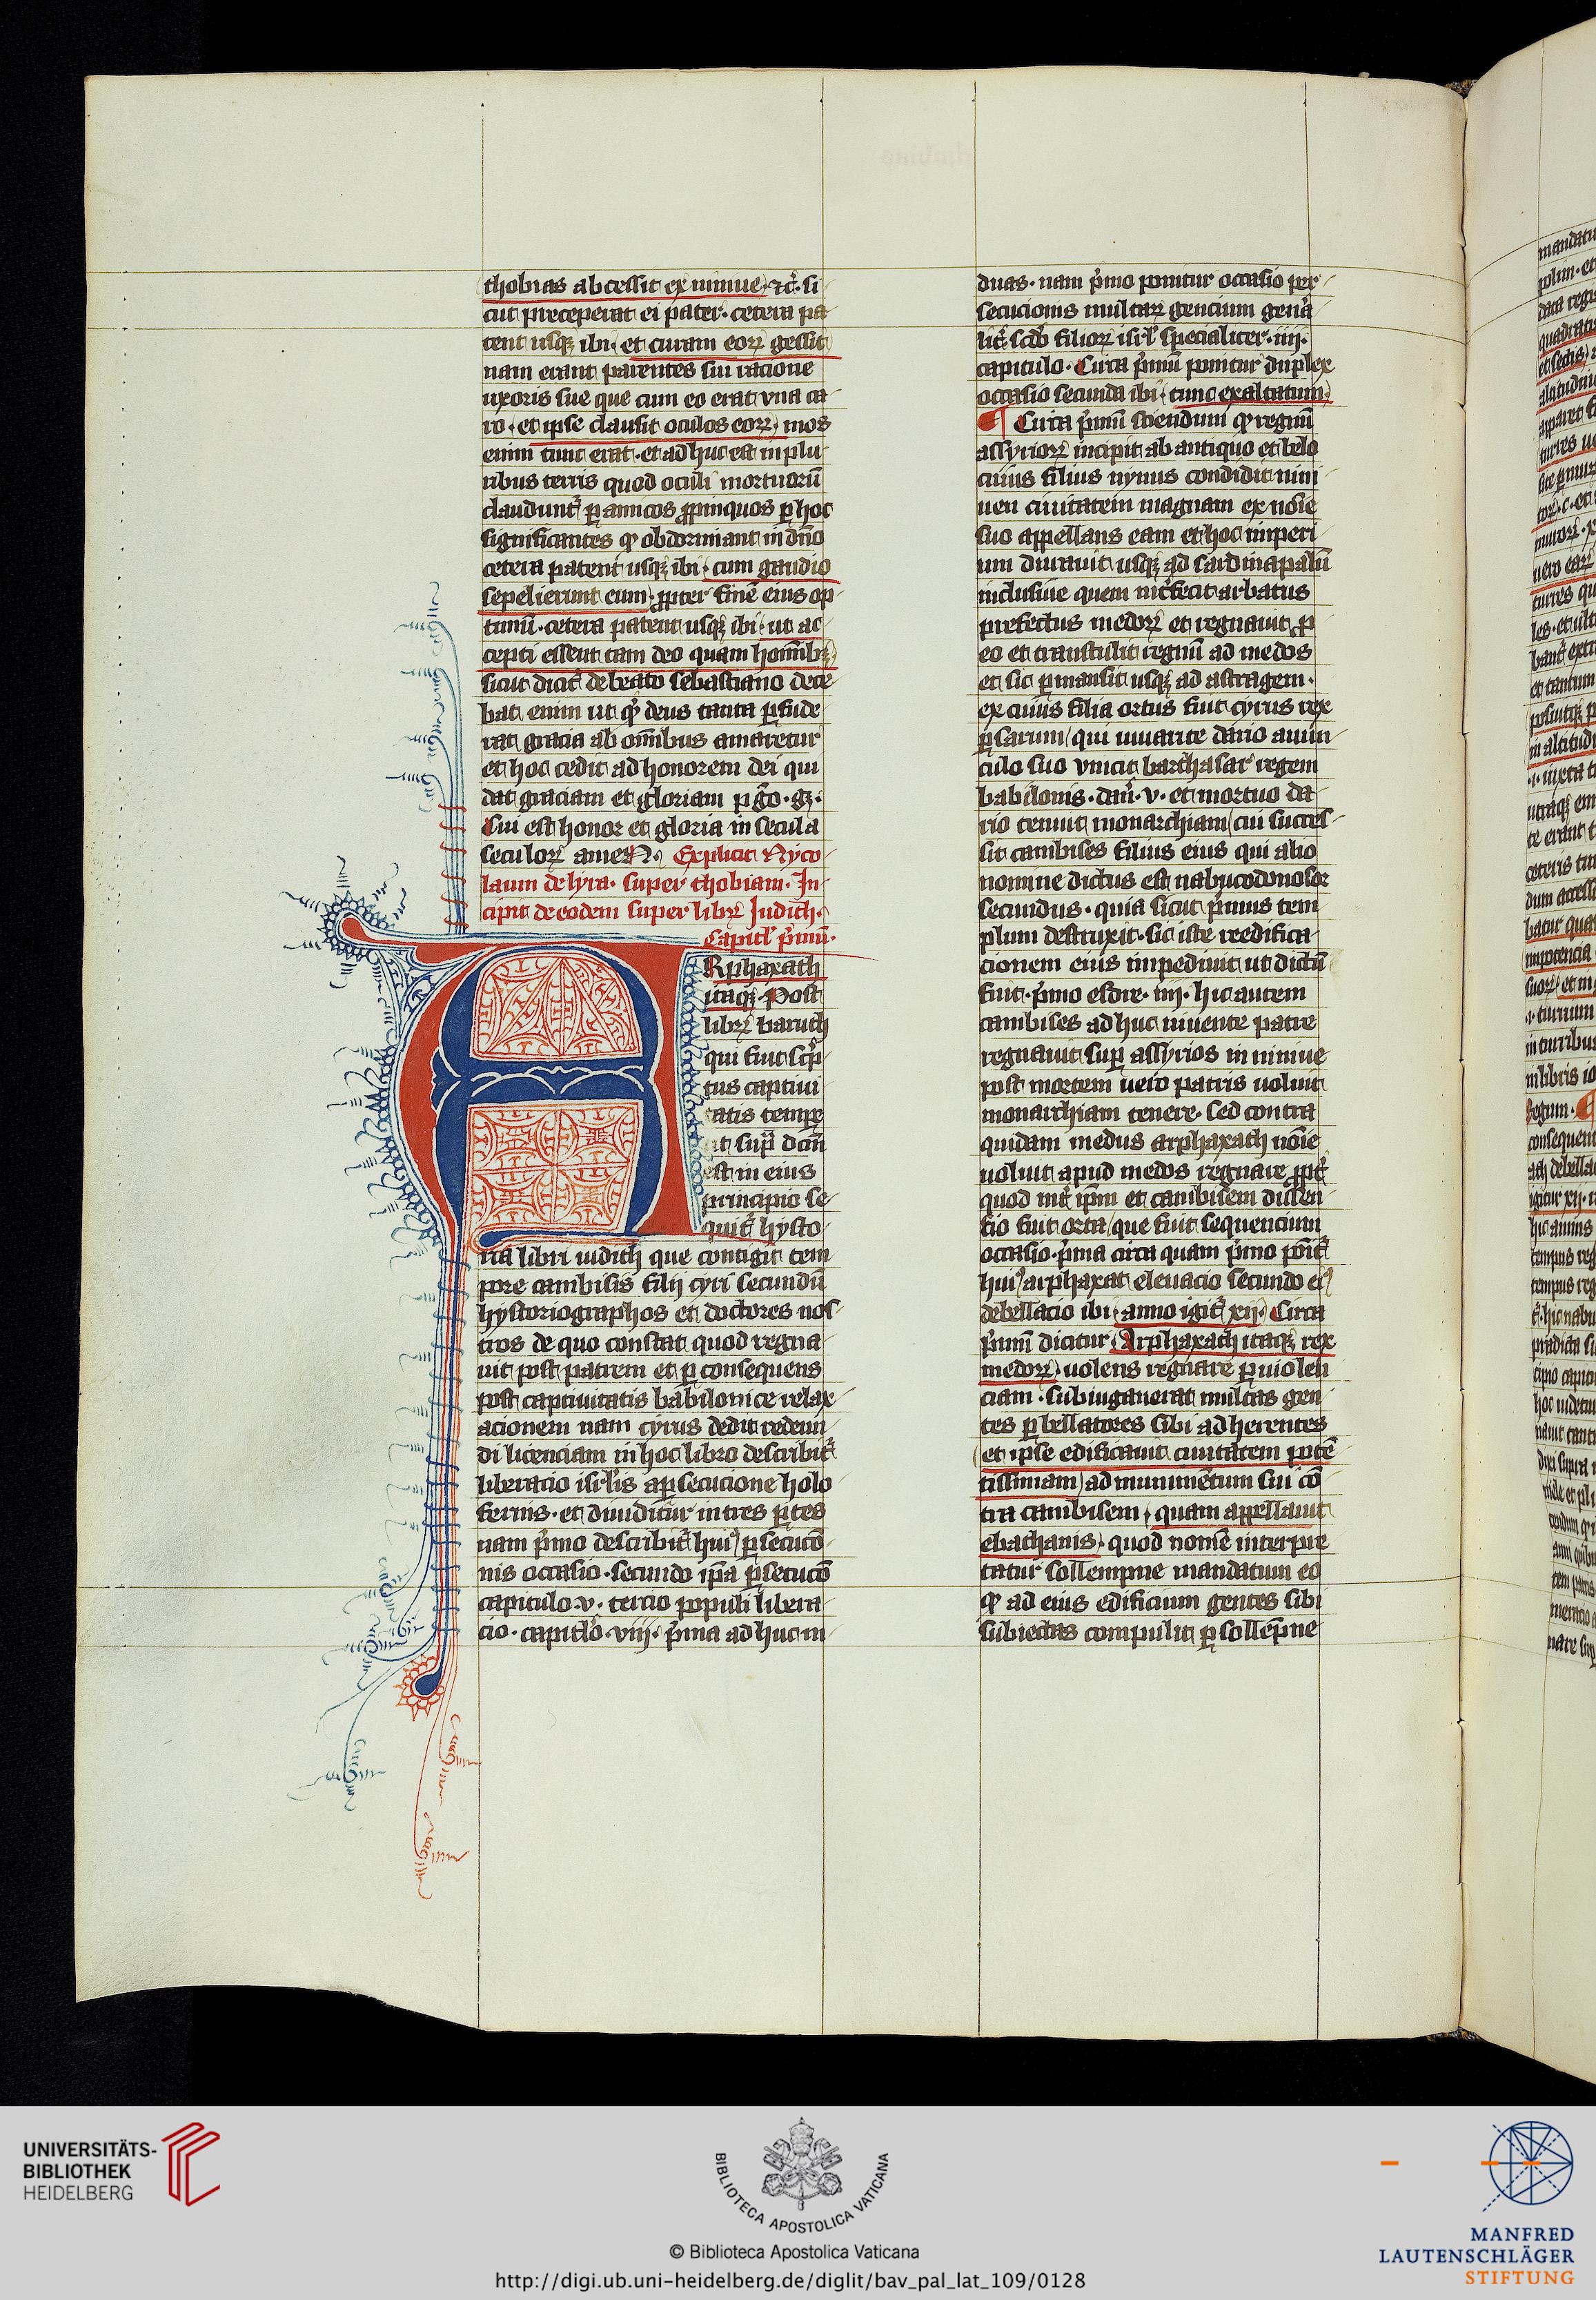 thobias abcessit ex niniue ⁊c̃. si
cut preceperat ei pater. cetera pa
tent usqꝫ ibi et curam eorꝝ gessit
nam erant parentes sui racione
uxoris sue que cum eo erat vna ca
ro. et ipse clausit oculos eorꝝ mos
enim tunc erat. et adhuc est in plu
ribus terris quod oculi mortuorū
claudunt᷑ ꝑ amicos ꝓpinquos ꝑ hoc
significantes ꝙ obdormiant in dn̄o
cetera patent usqꝫ ibi. cum gaudio
sepelierunt eum. ꝓpter finē eius op
timū. cetera patent usqꝫ ibi. ut ac
cepti essent tam deo quam hom̄ibꝫ
sicut dicit᷑ de beato sebastiano dece
bat enim ut qͥ deus tanta ꝑfude
rat gracia ab om̄ibus amaretur
et hoc cedit ad honorem dei qui
dat graciam et gloriam
Cui est honor et gloria in secula
seculorꝝ ameN. Explicit Nyco
laum de lyra. super thobiam. In
cipit de eodem super librꝝ Judith.
Capitl̓ p̓mū.
ARphaxath
itaqꝫ Post
librꝝ baruch
qui fuit scͥp
tus captiui
tatis tempe
ut supͣ dc̄m
est in eius
principio se
quit᷑ hysto
ria libri iudith que contigit tem
pore cambisis filij cyri secundū
hystoriographos et doctores nos
tros de quo constat quod regna
uit post patrem et ꝑ consequens
post captiuitatis babilonice relax
acionem nam cyrus dedit redeun
di licenciam in hoc libro describit᷑
liberacio isrl̓is a ꝑsecucione holo
fernis. et diuiditur in tres ꝑtes
nam p̓mo describit᷑ huiꝰ ꝑsecuco
nis occasio. secundo ip̄a ꝑsecucō
capitulo v. tercio populi libera
cio. capitl̓o viij. p̓ma adhuc in
duas. nam p̓mo ponitur occasio per
secucionis multarꝝ gencium gen̄a
lit᷑ scd̓o filiorꝝ isrl̓ specialiter. iiij.
capitulo. Circa p̓mū ponitur duplex
occasio secunda ibi. tunc exaltatum
¶ Circa p̓mū sciendum ꝙ regnū
assyriorꝝ incipit ab antiquo et belo
cuius filius nynus condidit nini
uen ciuitatem magnam ex noīe
suo appellans eam et hoc imperi
um durauit usqꝫ ad sardinapalū
inclusiue quem int᷑fecit arbatus
prefectus medorꝝ et regnauit ꝓ
eo et transtulit regnū ad medos
et sic ꝑmansit usqꝫ ad astragem.
ex cuius filia ortus fuit cyrus rex
ꝑsarum qui iuuante dario auun
culo suo vincit barthasar regem
babilonis. dan̓. v. et mortuo da
rio tenuit monarchiam cui succes
sit cambises filius eius qui alio
nomine dictus est nabucodonosor
secundus. quia sicut p̓mus tem
plum destruxit. sic iste reedifica
cionem eius impediuit ut dictū
fuit. p̓mo esdre. iiij. hic autem
cambises adhuc uiuente patre
regnauit suꝑ assyrios in niniue
post mortem uero patris uoluit
monarchiam tenere. sed contra
quidam medus arphaxath noīe
uoluit apud medos regnare ꝓpt᷑
quod int᷑ ip̄m et cambisem dissen
sio fuit orta que fuit sequencium
occasio. p̓ma circa quam p̓mo pōit᷑
huiꝰ arphaxat eleuacio secundo eiꝰ
debellacio ibi. anno igit᷑ xij. Circa
p̓mū dicitur. Arphaxath itaqꝫ rex
medorꝝ. uolens regnare ꝑ uiolen
ciam. subiugauerat multas gen
tes ꝑ bellatores sibi adherentes
et ipse edificauit ciuitatem potē
tissimam ad munimētum sui cō
tra cambisem. quam appellauit
ebathanis. quod nomē interpre
tatur sollempne mandatum eo
ꝙ ad eius edificium gentes sibi
subiectas compulit ꝑ sollēpne
UNIVERSITÄTS-
BIBLIOTHEK
HEIDELBERG
BIBLIOTECA APOSTOLICA VATICANA
© Biblioteca Apostolica Vaticana
http://digi.ub.uni-heidelberg.de/diglit/bav_pal_lat_109/0128
MANFRED
LAUTENSCHLÄGER
STIFTUNG